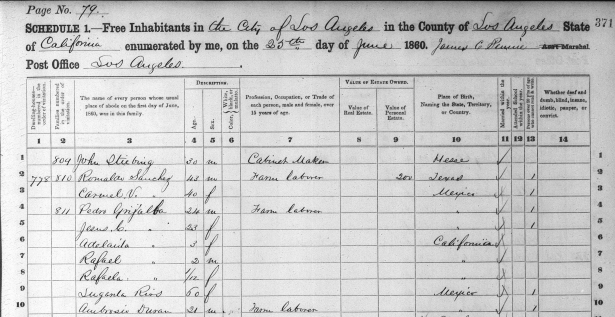 Page No. 79.
371
SCHEDULE 1.—Free Inhabitants in the City of Los Angeles in the County of Los Angeles State
of California enumerated by me, on the 25th day of June 1860. James C Asst Marshal.
Post Office Los Angeles.
Dwelling-houses—numbered in the order of visitation.
Families numbered in the order of visitation.
The name of every person whose usual place of abode on the first day of June, 1860, was in this family.
DESCRIPTION.
Age.
Sex.
Color, White, black, or mulatto.
Profession, Occupation, or Trade of each person, male and female, over 15 years of age.
VALUE OF ESTATE OWNED.
Value of Real Estate.
Value of Personal Estate.
Place of Birth, Naming the State, Territory, or Country.
Married within the year.
Attended School within the year.
Whether deaf and dumb, blind, insane, idiotic, pauper, or convict.
1 2 3 4 5 6 7 8 9 10 11 12 13 14
1 804 John Striebing 30 m Cabinet Maker Hesse
2 778 810 Romaldo Sanchez 43 m Farm laborer 200 Texas 1
3 Carmel V. 40 f Mexico 1
4 811 Pedro Grijalba 24 m Farm laborer " 1
5 Jesus C. " 23 f " 1
6 Adelaida " 3 f California
7 Rafael " 2 m "
8 Rafaela " /12 f "
9 Rios 60 f Mexico 1
10 Ambrosio Duran 21 m Farm laborer " 1